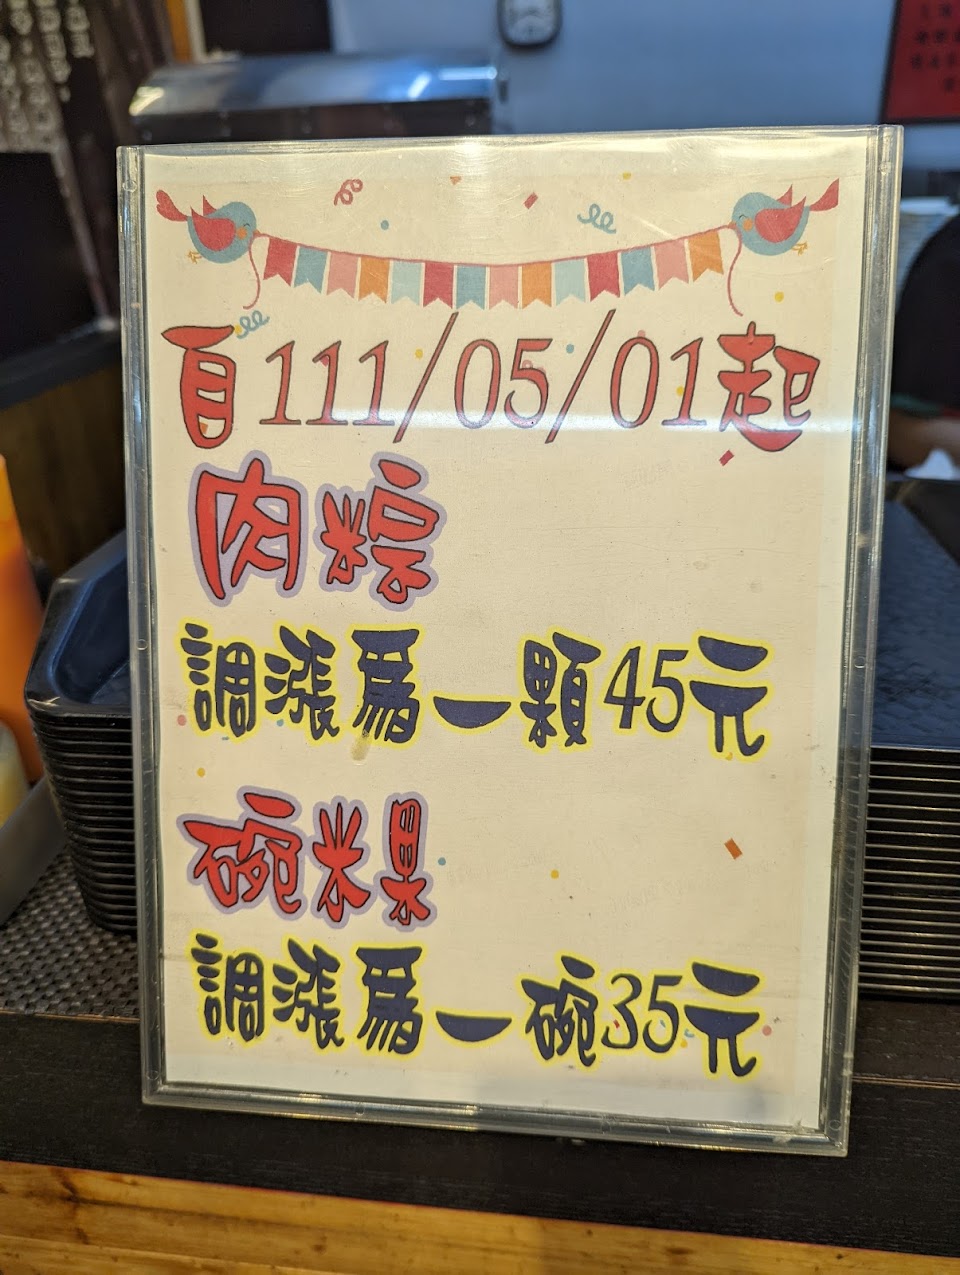 自111/05/01起
肉粽
調漲為一顆45元
碗粿
調漲為一碗35元